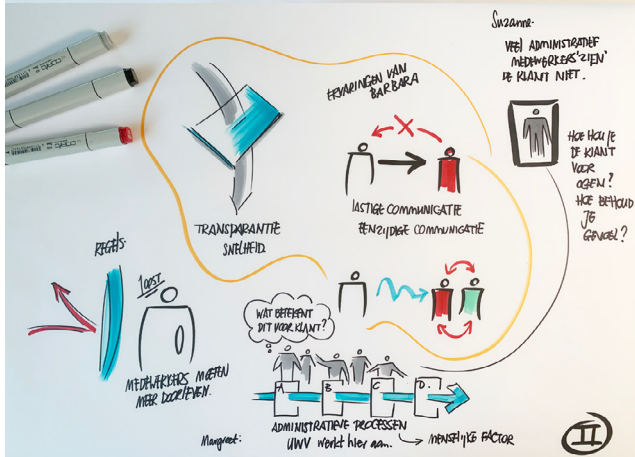 Suzanne.
VEEL ADMINISTRATIEF
MEDEWERKERS 'ZIEN'
DE KLANT NIET.
ERVARINGEN VAN
BARBARA
HOE HOU JE
DE KLANT
VOOR
OGEN?
HOE BEHOUD
JE
GEVOEL?
TRANSPARANTIE
SNELHEID.
LASTIGE COMMUNICATIE
EENZIJDIGE COMMUNICATIE
REGELS
MEDEWERKERS MOETEN
MEER DOORLEVEN.
WAT BETEKENT
DIT VOOR KLANT?
A B C D.
ADMINISTRATIEVE PROCESSEN
Margreet: UWV werkt hier aan... MENSELIJKE FACTOR
II